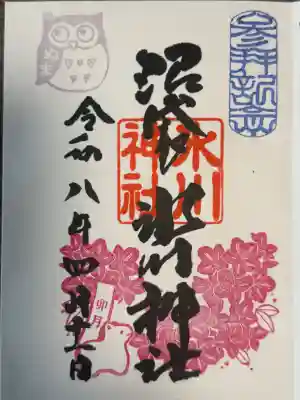 参拝記念
沼袋 氷川神社
氷川
神社
令和八年四月十一日
卯月